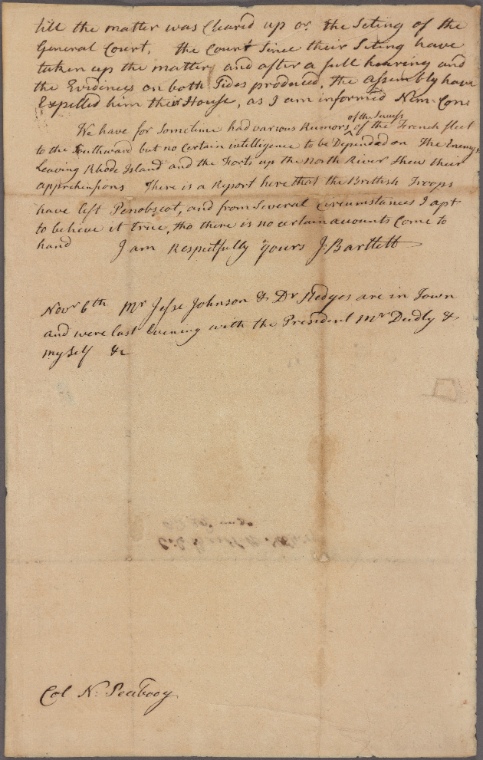 till the matter was Cleared up or the Seting of the
General Court, the Court Since their Seting have
taken up the matter and after a full hearing and
the Evidences on both Sides produced, the assembly have
Expelled him their House, as I am informed Nem: Con:
We have for Sometime had various Rumors of the Success of the French fleet
to the Southward but no Certain intelligence to be Depended on The Enemys
Leaving Rhode Island and the Forts up the North River Shew their
apprehensions There is a Report here that the Brittish Troops
have left Penobscot, and from Several Circumstances I apt
to believe it true, tho there is no certain accounts Come to
hand I am Respectfully yours J: Bartlett
Novr 6th Mr Jesse Johnson & Dr Hedges are in Town
and were last Evening with the President Mr Dudly &
my self &c
Col N: Peabody